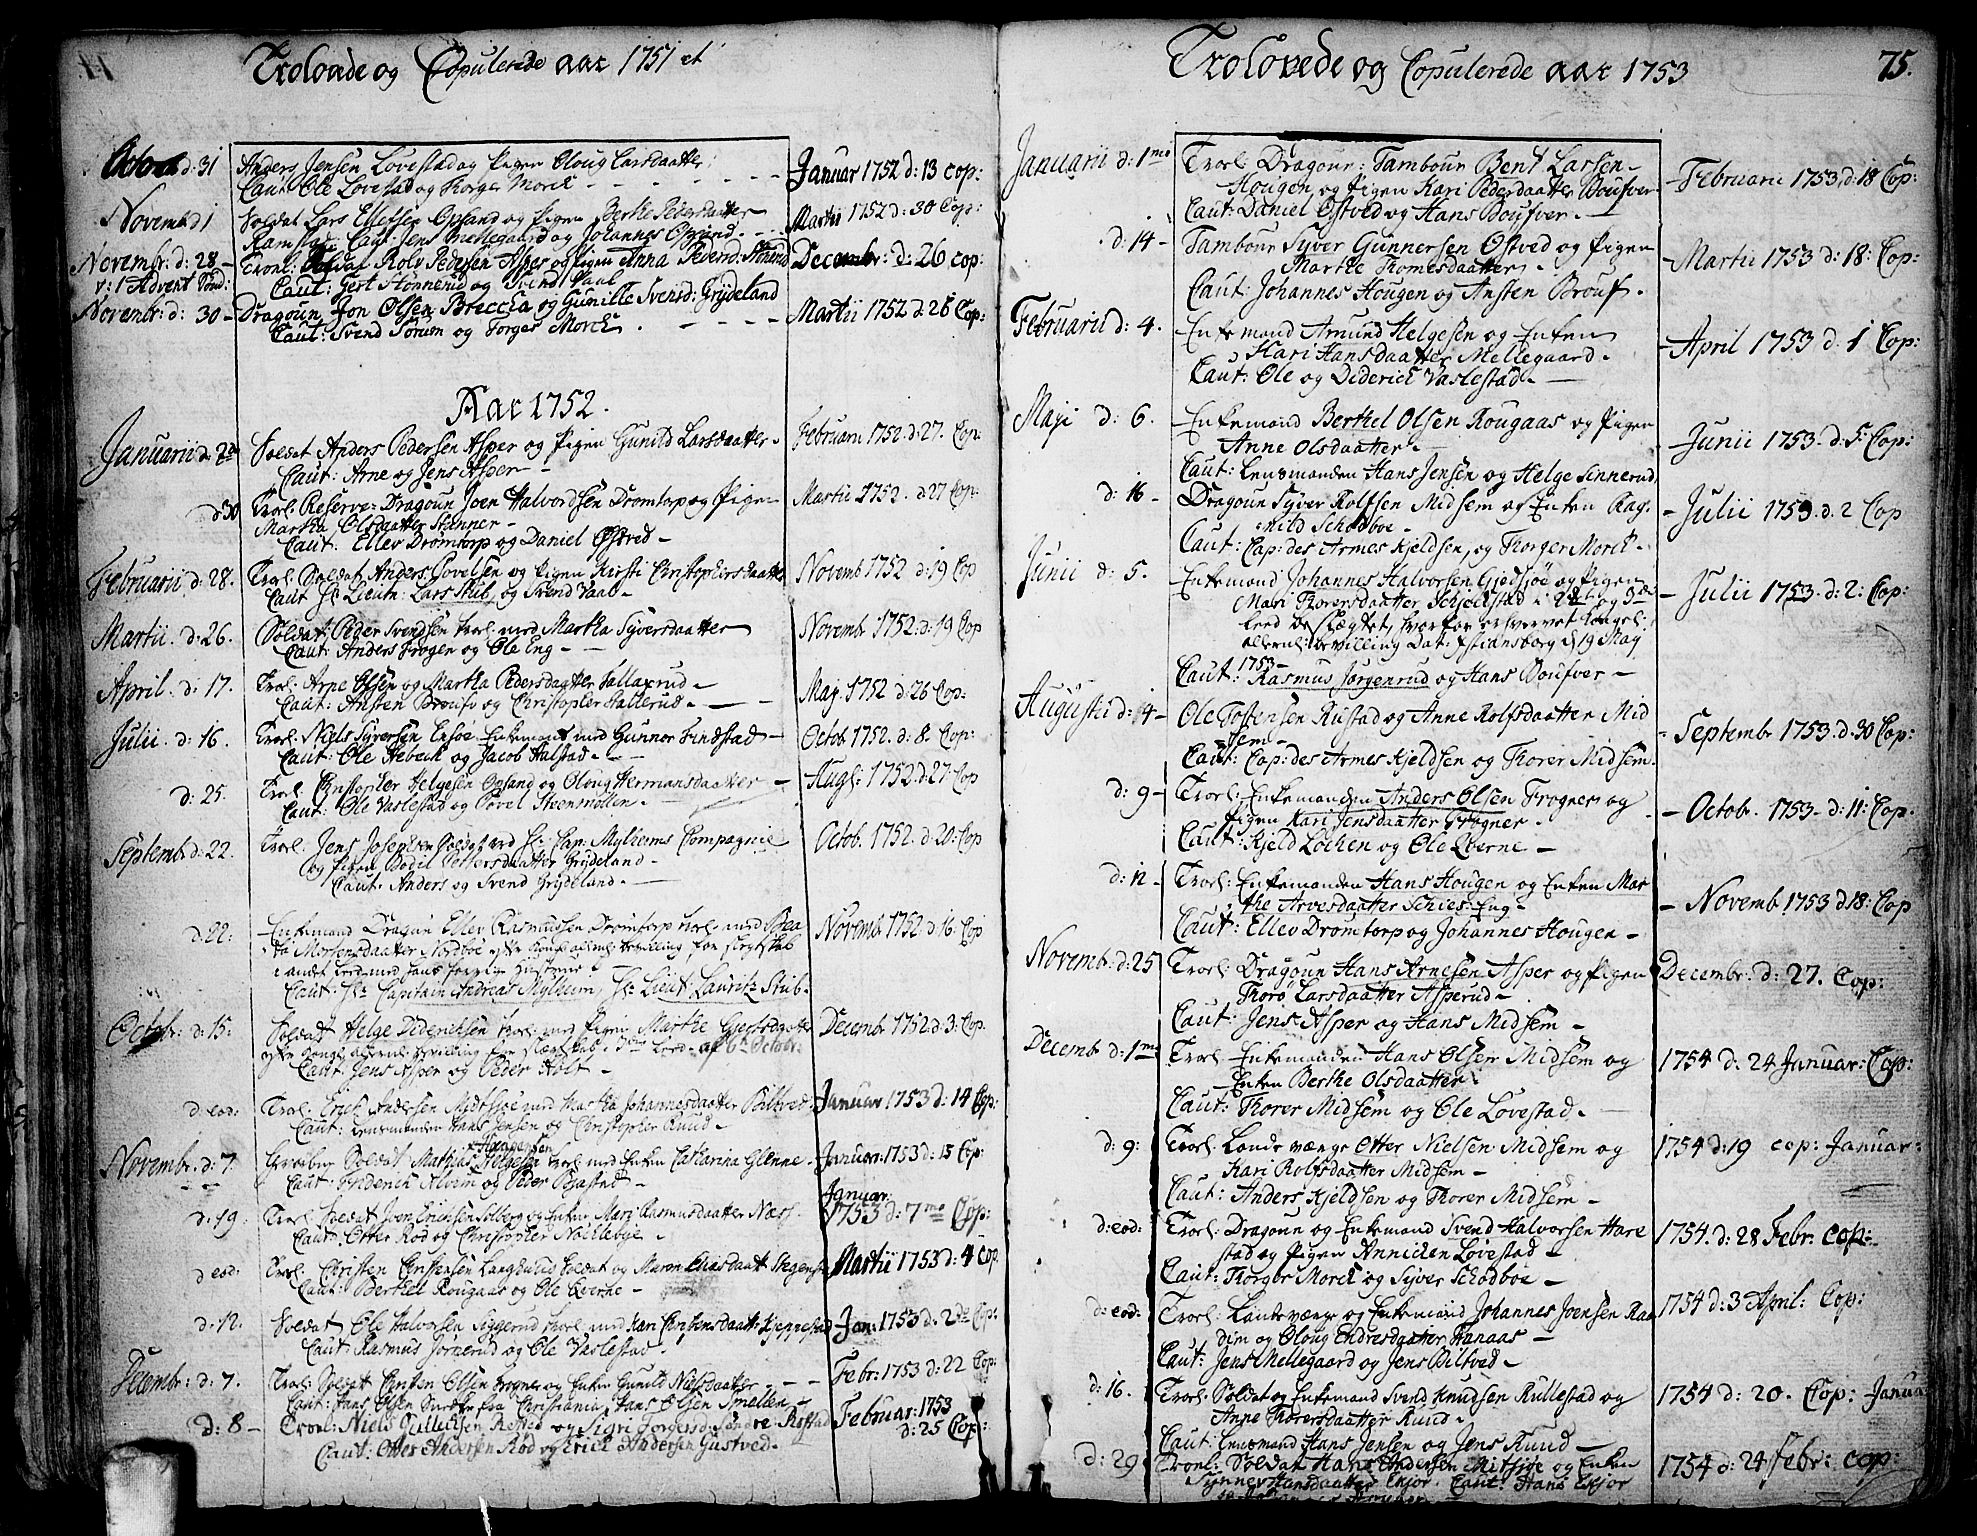 Trolovde og Copulerede aar 1751 et
Octobr d: 31 Anders Jensen Lovestad og Pigen Oloug Larsdaatter
Caut Ole Lovestad og Torger Morck - Januar 1752 d: 13 Cop:
Novemb d 1 Soldat Lars Ellefsen Opsand og Pigen Berthe Pedersdaatter
Ramstad. Caut: Jens Mellegaard og Johannes Opsand. - Martii 1752 d: 30 Cop:
Novembr: d: 28 - Trol: Soldat Rolv Pedersen Asper og Pigen Anna Pedersd: Stonnerud Decembr: d: 26 cop:
v: 1 Advent Sønd: Caut: Gert Stonnerud og Svend Vaal
Novembr: d: 30 - Dragoun Jon Olsen Breccha og Gunilde Svensd: Grydeland Martii 1752 d: 28 Cop:
Caut: Svend Sorum og Torger Morck.
Aar 1752.
Januarii d: 2de Soldat Anders Pedersen Asper og Pigen Gunild Larsdaatter - Februarii 1752 d: 27. Cop:
Caut: Arne og Jens Asper -
d 30 Trol: Reserve-Dragoun Joen Halvordsen Dromtorp og Pigen Martii 1752. d: 27 Cop:
Martha Olsdaatter Skinner -
Caut: Ellev Drømtorp og Daniel Østved -
Februarii d: 28. Trol: Soldat Anders Povelsen og Pigen Kirsti Christophersdaatter Novemb 1752 d: 19 Cop
Caut Hr Lieutn: Lars Stub, og Svend Vaal -
Martii. d: 26. Soldat Peder Svendsen trol: med Martha Syversdaatter Novembr 1752. d: 19 Cop
Caut: Anders Frogen og Ole Eng -
April. d: 17. Trol: Arne Olsen og Martha Pedersdaatter Tallaxrud - Maj. 1752 d: 26 Cop:
Caut: Ansten Broufo og Christopher Hallerud -
Julii. d: 16. Trol: Niels Syversen Ensøe Enkemant med Gunnor Findstad - Octob 1752. d: 8. Cop:
Caut: Ole Hebeck og Jacob Halstad -
d: 25. Trol: Christopher Helgesen Opsand og Oloug Hermansdaatter - Augl: 1752 d: 27. Cop
Caut: Ole Vaslestad og Povel Steensmollen -
Septemb d: 22. Trol: Jens Josephsen Soldat ved Hr: Cap: Mylheims Compagnie Octob. 1752. d: 20: Cop
og Pigen Bodil Pettersdaatter Grydeland -
Caut: Anders og Svend Grydeland -
d: 22: Enkemand Dragun Ellev Rasmussen Dromtorp trol: med Bea Novemb 1752 d: 16. Cop
ta Mortensdaatter Nordboe efter Kongl: allernl: bevilling for slegtskab
i andet Leed med hans forrige Hustrue -
Caut: Hr Capitain Andreas Mylheim, Hr Lieut: Lauritz Stub -
Octobr. d: 15: Soldat Helge Dideriksen trol: med Pigen Marthe Gjertsdaatter Decembr 1752. d: 3: Cop.
efter Kongl: allernl: bevilling for slægtskab i 3die Leed. af 6te Octobr:
Caut: Jens Asper og Peder Holt -
d: eod: Trol: Erich Andersen Midtsjøe med Martha Johannesdaatter Biltved Januar 1753 d: 14 Cop:
Caut: Lensmanden Hans Jensen og Christopher Ruud -
Haagensen
Novembr. d: 7. Soldat Mathias Helgesen trol: med Enken Catharina Glenne. Januar: 1753 d: 15 Cop:
Caut: Friderich Alvim og Peder Bjastad -
d: 19. Trol: Soldat Joen Ericksen Solberg og Enken Mari Rasmusdaatter Næss. Januar 1753 d: 7me Cop:
Caut: Otter Rod og Christopher Nochlebye -
d eod: Trol: Christen Christensen Langhuus Soldat og Maren Eliasdaatt Stegens Martii 1753 d: 4 Cop.
Caut: Berthel Rougaas og Ole Qverne -
d: 12. Soldat Ole Halvorsen Siggerud trol: med Kari Christensdaatt: Kjeppestad Jan: 1753 d: 2de Cop:
Caut Rasmus Jornerud og Ole Vaslestad -
Decembr: d: 7. Trol: Soldat Christen Olsen Frogner og Enken Gunild Nielsdaatter - Febr: 1753 d: 22 Cop:
Caut: Hans Olsen fra Christiania, Hans Olsen Smellen -
d: 8 - Trol: Niels Rostad og Sigri Torgersd: Rostad Februar: 1753 d: 25 Cop:
Caut: Otter Andersen Rod og Erick Andersen Gustved -
Trolovede og Copulerede aar 1753 75.
Januarii d: 1me Trol: Dragoun: Tambour Bent Larsen - Februarii 1753. d: 18 Cop:
Hougen og Pigen Kari Pedersdaatter Boufver
Caut: Daniel Østved og Hans Boufver. -
d: 14 - Tambour Syver Gunnersen Østved og Pigen - Martii 1753 d: 18: Cop:
Marthe Thomesdaatter -
Caut: Johannes Hougen og Ansten Brouf.
Februarii d: 4. Enkemand Amund Helgesen og Enken - April 1753 d: 1 Cop:
Kari Hansdaatter Mellegaard -
Caut: Ole og Diderich Vaslestad -
Maji d: 6. Enkemand Berthel Olsen Rougaas og Pigen - Junii 1753. d: 5: Cop:
Anne Olsdaatter -
Caut: Lensmanden Hans Jensen og Helge Sinnerud
d: 16 - Dragoun Syver Rolfsen Midsem og Enken Rag - Julii 1753. d: 2 Cop
nild Schodboe -
Caut: Cap: des Armes Kjeldsen, og Thorger Morck -
Junii d: 5. Enkemand Johannes Halvorsen Gjedsjøe og Pigen - Julii 1753. d: 2: Cop:
Mari Thorersdaatter Schjelstad i 2det og 3die
Leed Beslægtet, hvorfor erhvervet Kongel:
allernl: bevilling Dat: Fstiansborg d 19 Maj
1753 -
Caut: Rasmus Jørgenrud og Hans Boufver -
Augusti d: 4 - Ole Tostensen Rustad og Anne Rolfsdaatter Mid - Septembr 1753. d. 30 Cop:
sem -
Caut: Cap: des Armes Kjeldsen og Thorer Midsem.
d: 9 - Trol: Enkemanden Anders Olsen Frogner og - Octob. 1753. d: 11: Cop.
Pigen Kari Jensdaatter Frogner -
Caut: Kjeld Lochen og Ole Qverne -
d: 12 - Trol: Enkemanden Hans Hougen og Enken Mar - Novemb 1753 d 18: Cop
the Arvesdaatter Schies: Eng -
Caut: Ellev Dromtorp og Johannes Hougen -
Novemb. d: 25 Trol: Dragoun Hans Arnesen Asper og Pigen Decembr: d: 27. Cop:
Thorø Larsdaatter Asperud -
Caut: Jens Asper og Hans Midsem -
Decemb d: 1me Trol: Enkemanden Hans Olsen Midsem og 1754 d: 24 Januar: Cop:
Enken Berthe Olsdaatter
Caut: Thorer Midsem og Ole Lovestad -
d: 9: Trol: Landeværge Otter Nielsen Midsem og 1754 d: 19 cop: Januar:
Kari Rolfsdaatter Midsem -
Caut: Anders Kjeldsen og Thorer Midsem -
d: eod: Trol: Dragoun og Enkemand Svend Halvorsen Hare 1754. d: 28 Febr: Cop:
stad og Pigen Annichen Lovestad -
Caut: Thorger Morck og Syver Schodboe -
d: eod: Trol: Landeværge og Enkemand Johannes Joensen Raa 1754 d: 3 April: Cop:
dim og Oloug Endresdaatter Kanaas -
Caut: Jens Mellegaard og Jens Biltved -
d: 16. Trol: Soldat og Enkemand Svend Knudsen Kullestad og 1754 d: 20. Cop: Janua
Anne Thorersdaatter Ruud -
Caut: Lensmand Hans Jensen og Jens Ruud -
d: 29 Trol: Soldat Hans Andersen Mitsjøe og Enken 1754 d: 24 Febr: cop:
Synnev Hansdaatter Ekjor. Caut: Hans Ekjor